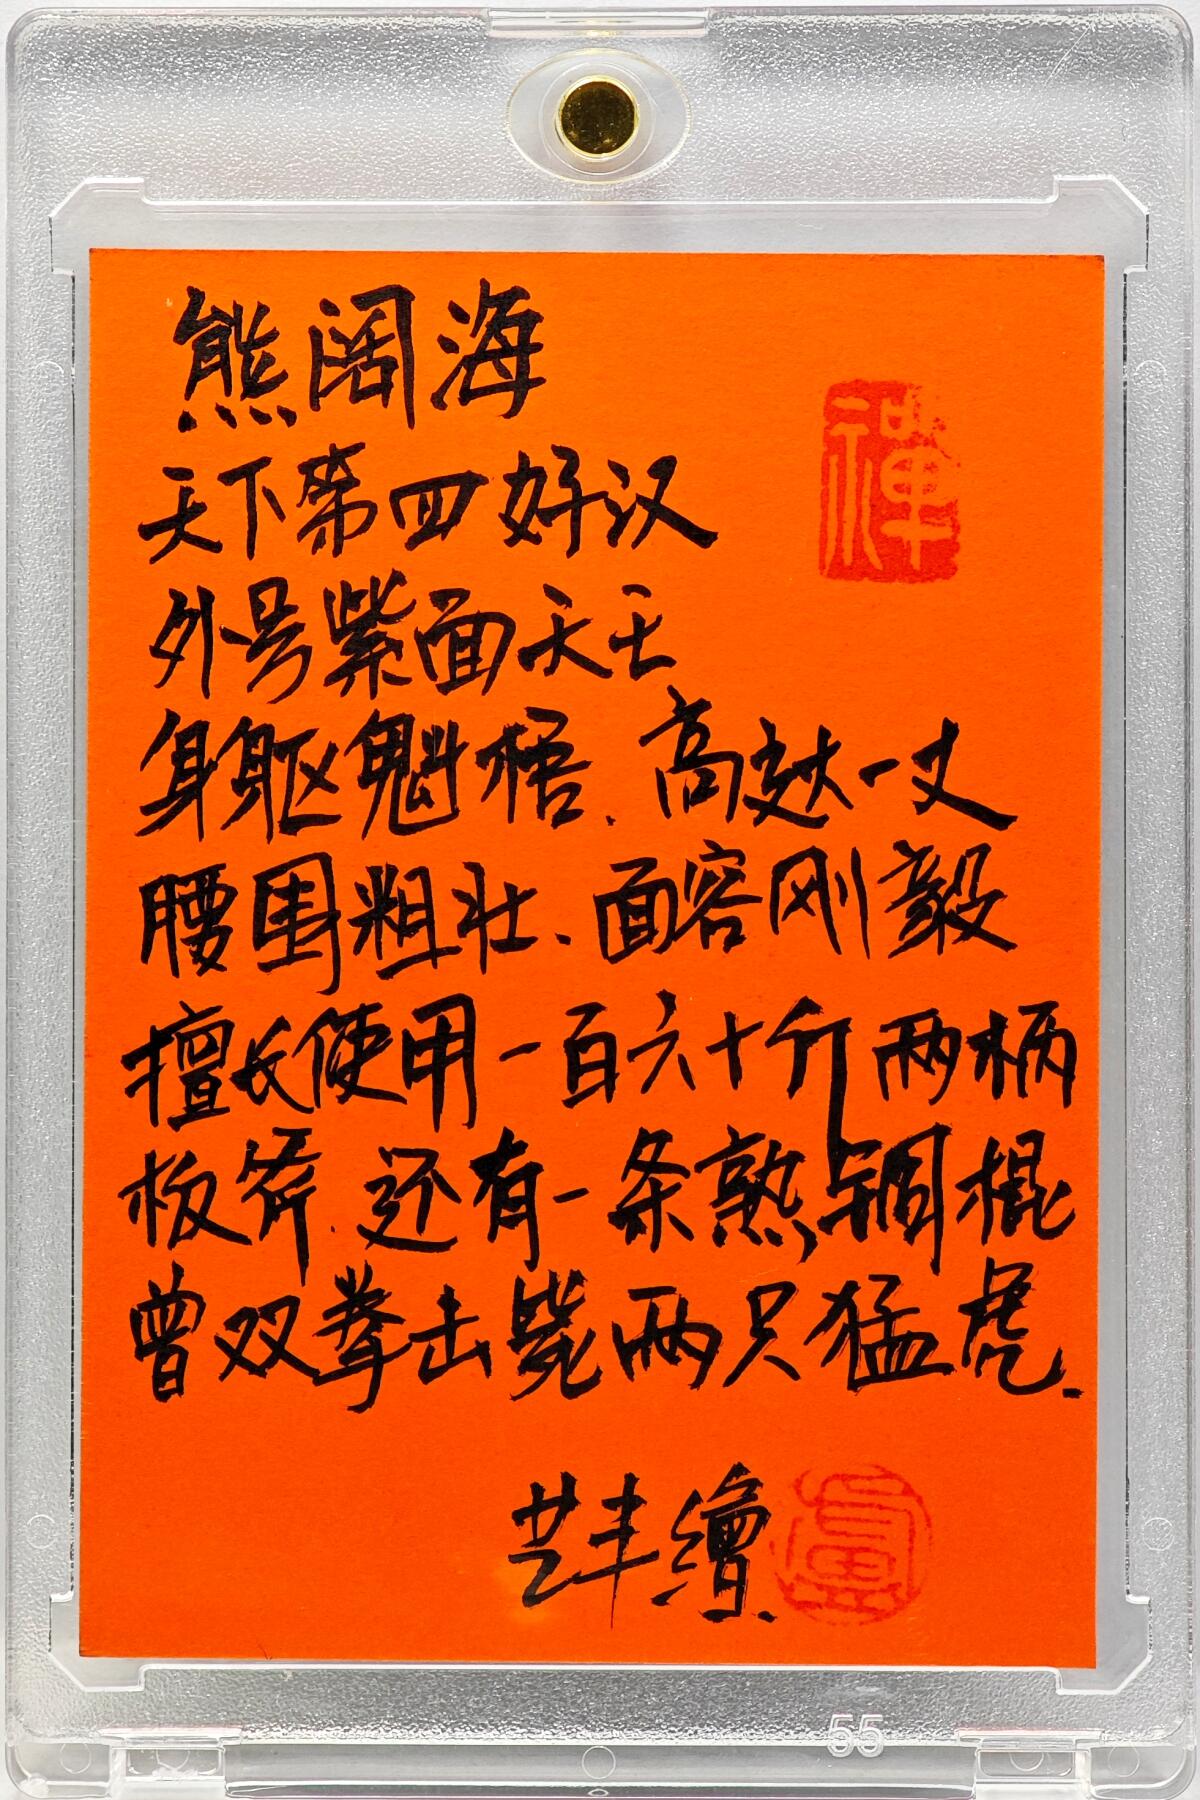 熊阔海
禅
天下第四好汉
外号紫面天王
身躯魁梧、高达一丈
腰围粗壮、面容刚毅
擅长使用一百六十斤两柄
板斧.还有一条熟铜棍
曾双拳击毙两只猛虎.
艺丰繪.
55